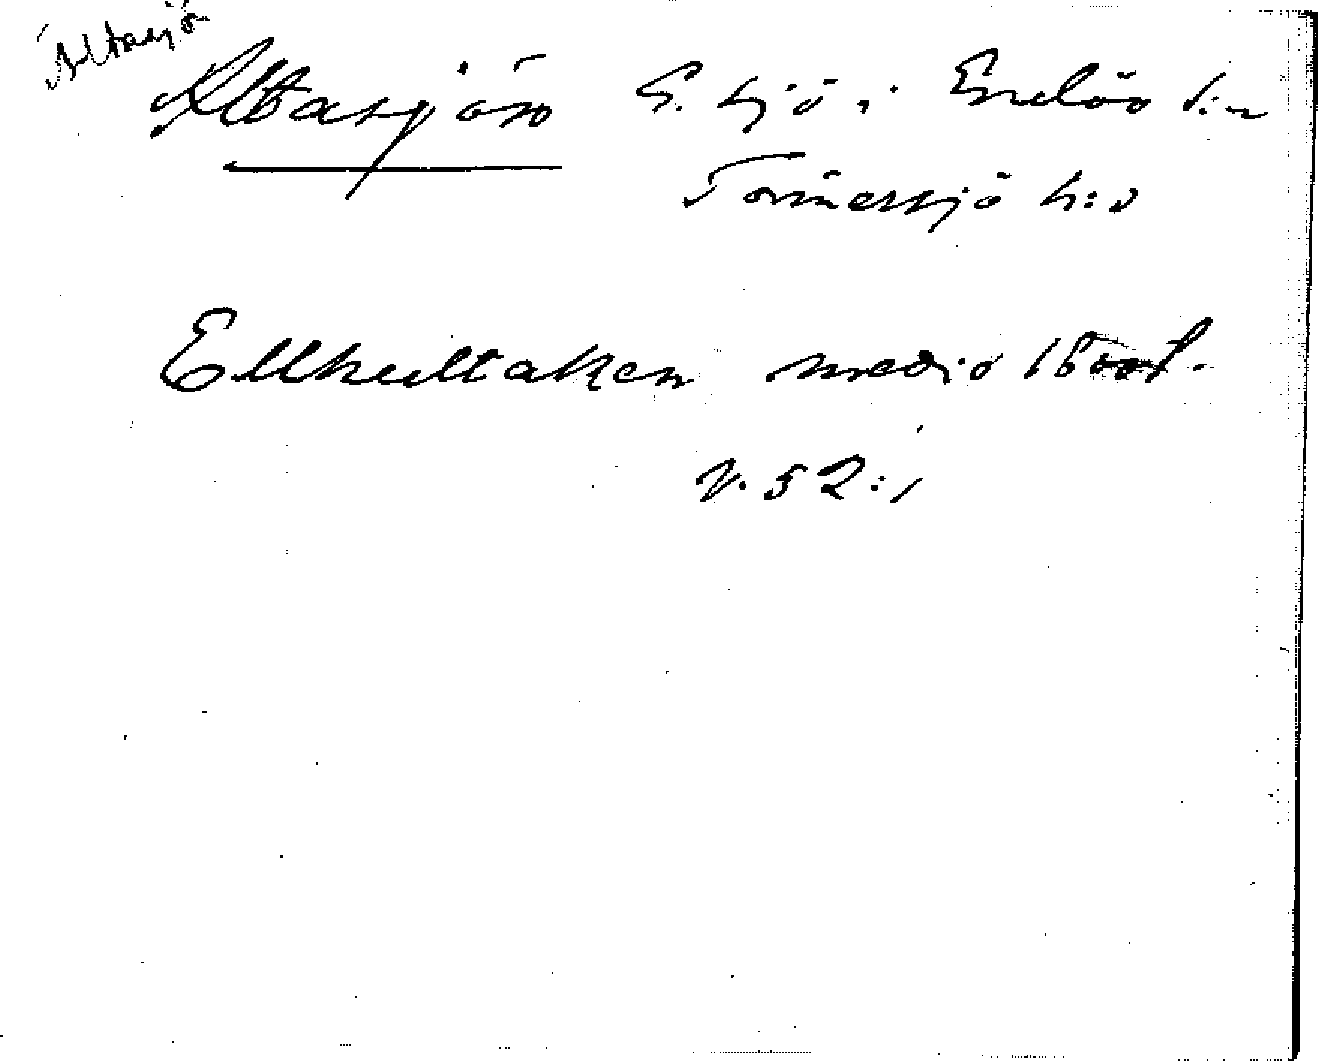 Ältasjö
Altasjön S. sjö i Enslöv s:n
Tönnersjö h:d
Ellhultaken medio 1600t.
V. 52:1